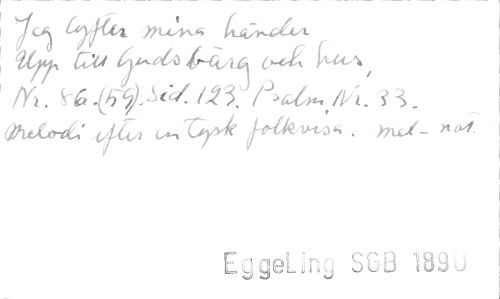 Jag lyfter mina händer
Upp till Guds bärg och hus,
Nr. 86.(59). Sid. 123. Psalm Nr. 33.
Melodi efter en tysk folkvisa. mel-not.
EggeLing SGB 1890